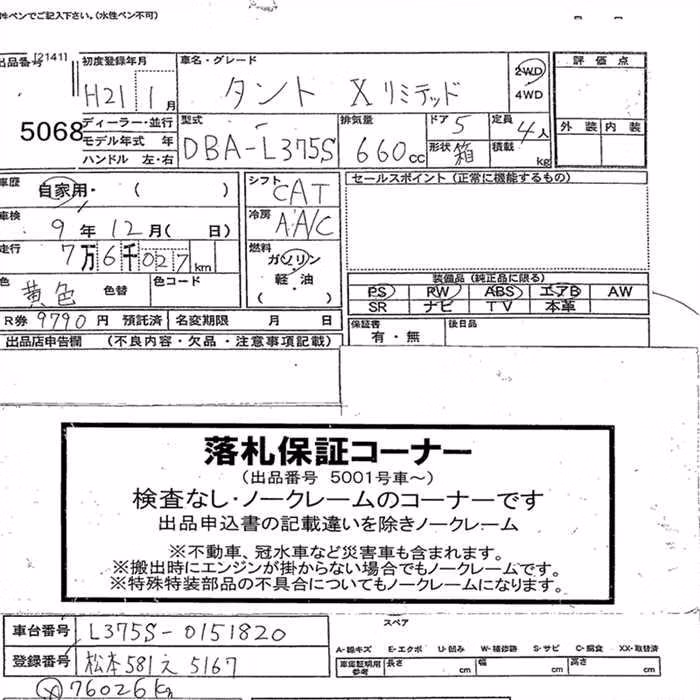 性ペンでご記入下さい。(水性ペン不可)
出品番号 [2141] 初度登録年月 車名・グレード 評 価 点
H21 1月 タント Xリミテッド 2WD
4WD
5068 ディーラー・並行 型式 排気量 ドア 5 定員 4人 外 装 内 装
モデル年式 年 DBA-L375S 660cc 形状 箱 積載 kg
ハンドル 左・右
車歴 自家用・( ) シフト CAT セールスポイント(正常に機能するもの)
車検 9年12月( 日) 冷房 A/C
走行 7万6千027km 燃料 ガソリン
軽・油
( ・ )
色 黄色 色替 色コード 装備品(純正品に限る)
PS RW ABS エアB AW
SR ナビ TV 本革
R券 9790円 預託済 名変期限 月 日 保証書 有・無 後日品
出品店申告欄 (不良内容・欠品・注意事項記載)
落札保証コーナー
(出品番号 5001号車~)
検査なし・ノークレームのコーナーです
出品申込書の記載違いを除きノークレーム
※不動車、冠水車など災害車も含まれます。
※搬出時にエンジンが掛からない場合でもノークレームです。
※特殊特装部品の不具合についてもノークレームになります。
車台番号 L375S-0151820 スペア
A-線キズ E-エクボ U-凹み W-補修跡 S-サビ C-腐食 XX-取替済
登録番号 松本581え5167 車庫証明用参考 長さ cm 幅 cm 高さ cm
76026km